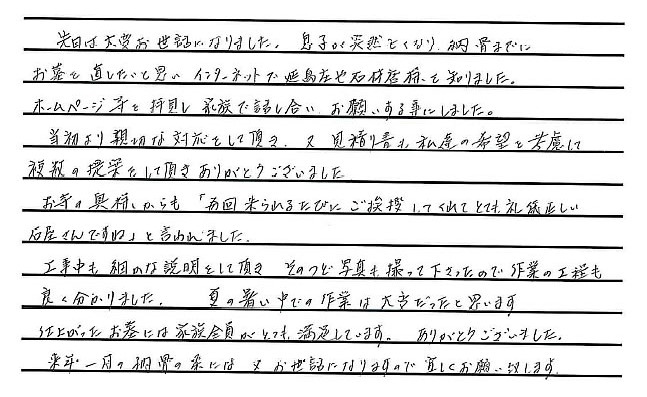 先日は大変お世話になりました。 息子が突然亡くなり、納骨までに
お墓を直したいと思い インターネットで 石材店様を知りました。
ホームページ等を拝見し 家族で話し合い お願いする事にしました。
当初より親切な対応をして頂き、又 見積り書も 私達の希望を考慮して
複数の提案をして頂き ありがとうございました
お寺の奥様からも 「毎回来られるたびに ご挨拶してくれて とても礼儀正しい
石屋さんですね」と言われました。
工事中も 細かな説明をして頂き そのつど写真も撮って下さったので 作業の工程も
良く分かりました。 夏の暑い中での作業は大変だったと思います
仕上がったお墓には家族全員がとても満足しています。 ありがとうございました。
来年一月の納骨の際には 又お世話になりますので宜しくお願い致します。